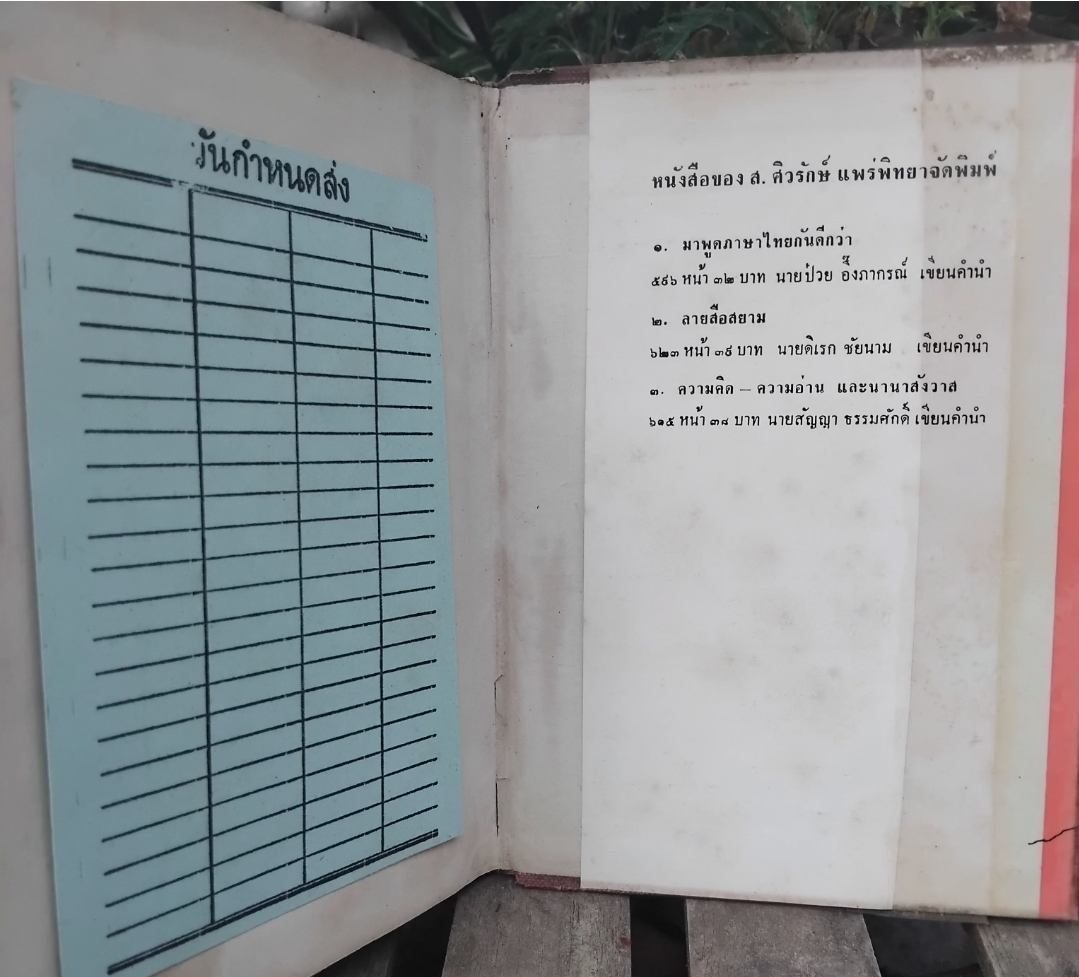 วันกำหนดส่ง
หนังสือของ ส. ศิวรักษ์ แพร่พิทยาจัดพิมพ์
๑. มาพูดภาษาไทยกันดีกว่า
๕๙๖ หน้า ๓๒ บาท นายป๋วย อึ๊งภากรณ์ เขียนคำนำ
๒. ลายสือสยาม
๖๒๓ หน้า ๓๙ บาท นายดิเรก ชัยนาม เขียนคำนำ
๓. ความคิด – ความอ่าน และนานาสังวาส
๖๑๕ หน้า ๓๘ บาท นายสัญญา ธรรมศักดิ์ เขียนคำนำ